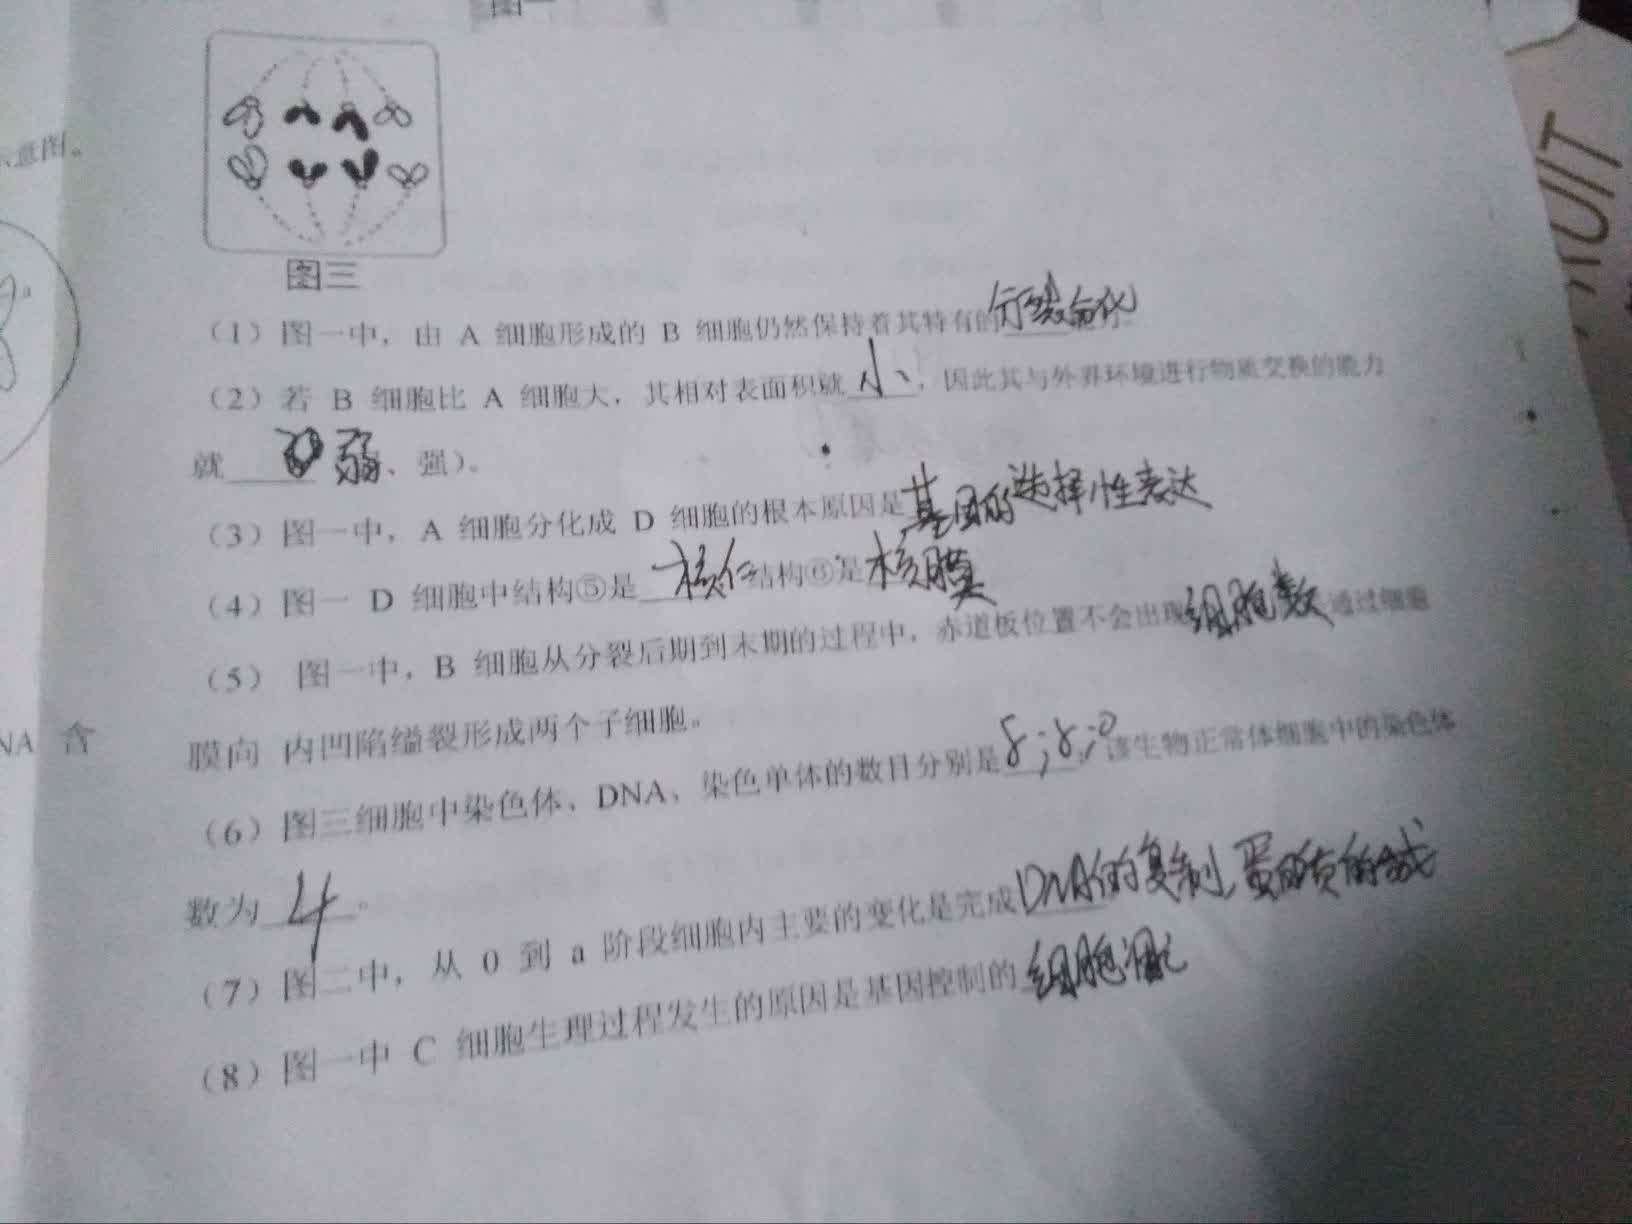 示意图。
图三
（1）图一中，由 A 细胞形成的 B 细胞仍然保持着其特有的分裂分化
（2）若 B 细胞比 A 细胞大，其相对表面积就小，因此其与外界环境进行物质交换的能力
就 弱、强）。
（3）图一中，A 细胞分化成 D 细胞的根本原因是基因的选择性表达
（4）图一 D 细胞中结构⑤是核仁结构⑥是核膜
（5） 图一中，B 细胞从分裂后期到末期的过程中，赤道板位置不会出现细胞数通过细胞
膜向 内凹陷缢裂形成两个子细胞。
NA 含
（6）图三细胞中染色体、DNA、染色单体的数目分别是8;8;0 该生物正常体细胞中的染色体
数为 4 。
（7）图二中，从 0 到 a 阶段细胞内主要的变化是完成DNA的复制，蛋白质的合成
（8）图一中 C 细胞生理过程发生的原因是基因控制的细胞凋亡
UIT